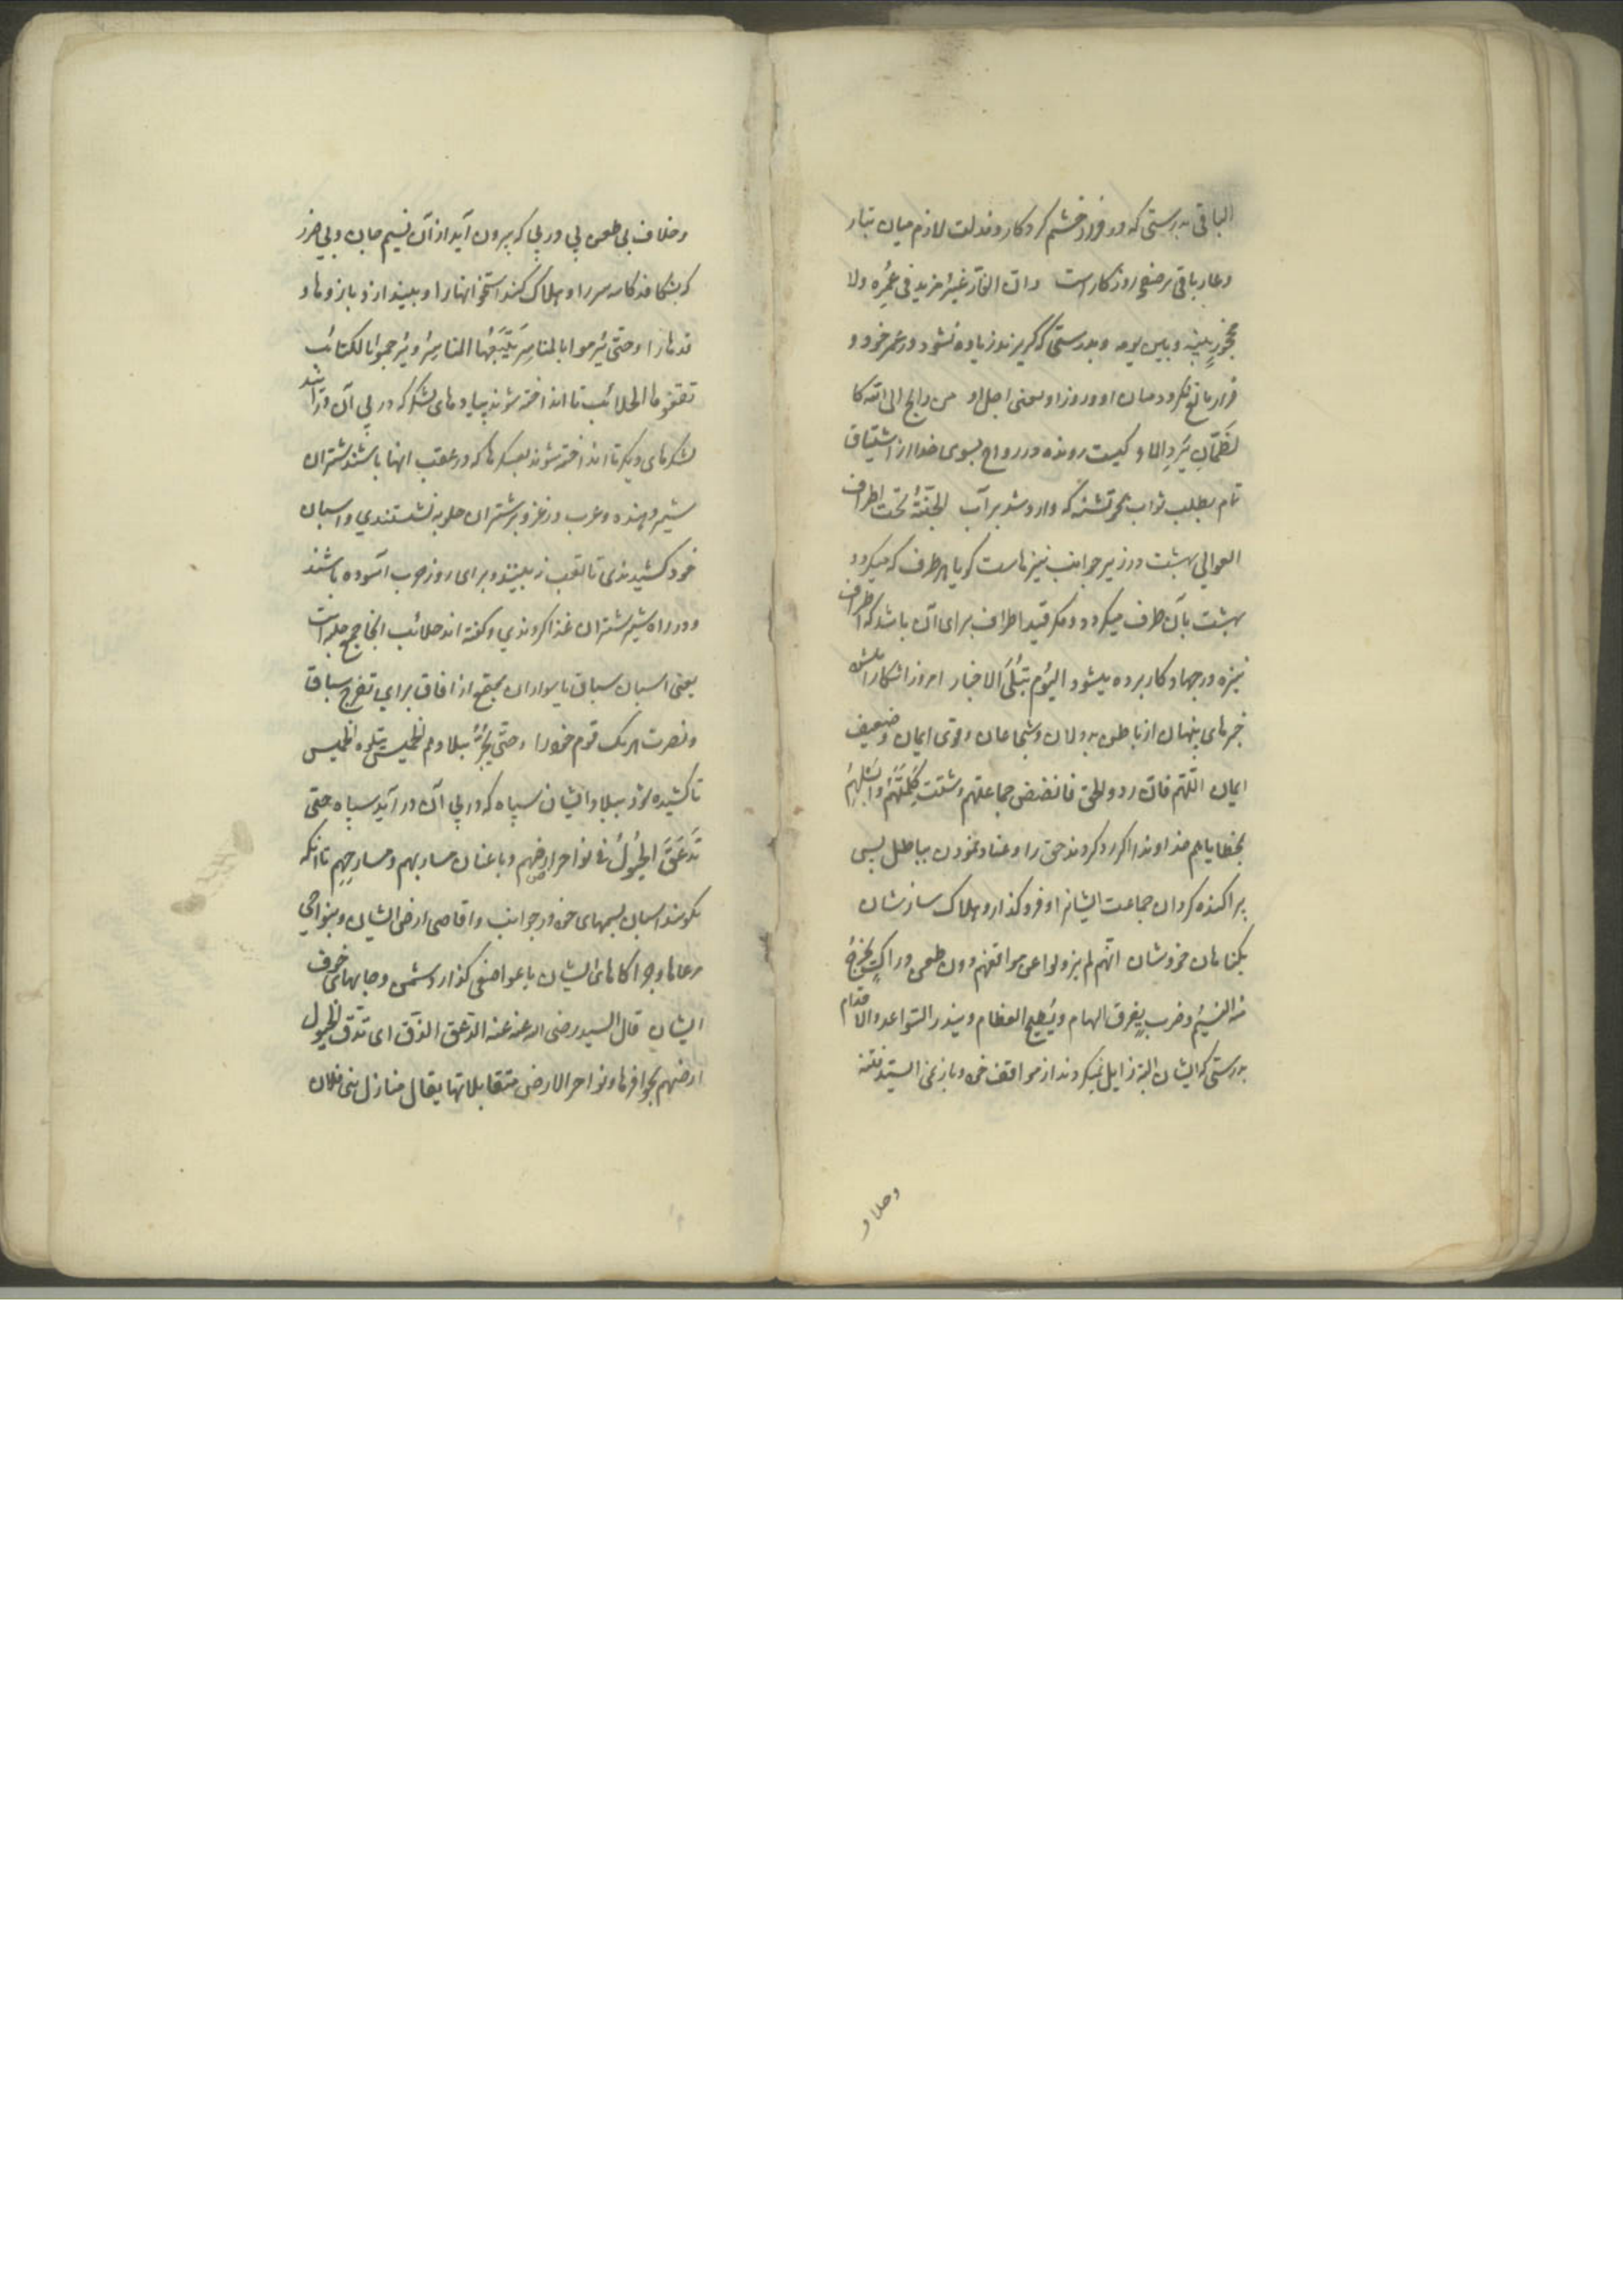 الباقی بدرستی که در فرار خشم کردکار و مذلت لازم میان تبار
و عار باقی بر صفح روزکار است وان الفارّ غیرُ مزید فی عُمره ولا
محجورٍ بینه وبین یومه و بدرستی که کریزنده زیاده نشود در عمر خود و
فرار مانع نکردد میان او و روز او یعنی اجل او من رایح الی الله کا
لظمّانِ یَردِ الماء و کیست رونده در رواح بسوی خدا از اشتیاق
تام بطلب ثواب همچو تشنه که وارد شد بر آب الجنّةُ تحت اطراف
العوالی بهشت در زیر جوانب نیزهاست کویا بهر طرف که میکردد
بهشت بآن طرف میکردد و مکر قید اطراف برای آن باشد که اطراف
نیزه در جهاد کار برده میشود الیوم تُبلَی الاخبار امروز اشکارا شد
خبرهای پنهان از باطن بددلان و شجاعان و قوی ایمان و ضعیف
ایمان اللّهم فان ردوا الحق فافضض جماعتهم وشتت کلمتَهُم وابسلهُم
بخطایاهم خداوندا اکر رد کردند حق را و عناد نمودن بباطل پس
پراکنده کردان جماعت ایشانرا و فرو کذار و هلاک ساز شان
بکناهان خودشان انّهم لم یزولوا عن مواقفهم دون طعنٍ دراکٍ یخرج
منه النسیم وضربٍ یفرق الهام ویُطیح العظام ویندر السّواعد والاقدام
بدرستی که ایشان البته زایل نمیکردند از مواقف خود و باز نمی ایستند فتنه
و خلاف بی طعن پی در پی که بیرون آید از آن نسیم جان و بی ضرب
که بشکافد کاسه سر را و هلاک کند استخوانها را و بیندازد بازوها و
قدمها را و حتی یُرموا بالمناسِر یَتبَعُها المناسرُ ویُرجموا بالکتائب
تقفوها الحلائب تا انداخته شوند بپیاده های لشکر که در پی آن در آیند
لشکرهای دیکر تا انداخته شوند بعسکرها که در عقب انها باشند شتران
شیر دهنده و عرب در غزو بر شتران حلوبه نشستندی و اسبان
خود کشیدندی تا تعب نه بینند و برای روز حرب آسوده باشند
و در راه شیر شتران غذا کردندی و کفته اند حلائب انجا جمع حلبه است
یعنی اسبان سباق با سواران مجتمع از افاق برای تفرج سباق
و نصرت هر یک قوم خود را و حتی یُجرَّ ببلادهم الخمیس یتلوه الخمیس
تا کشیده شود ببلاد ایشان سپاه که در پی آن در آید سپاه حتی
تَدعَقَ الخُیُولُ فی نواحر ارضهم وباعنان مساربهم ومسارحِهِم تا انکه
بکوبند اسبان بسمهای خود در جوانب و اقاصی ارض ایشان و بنواحی
مرعاها و چراکاهای ایشان یا عوا صفی کذار دشمن و جایهای خوف
ایشان قال السید رضی الله عنه الدّعق الدّق ای تدُق الخیول
ارضهم بحوافرها و نواحر الارض متقابلاتها یقال منازل بنی فلان
وخلاو